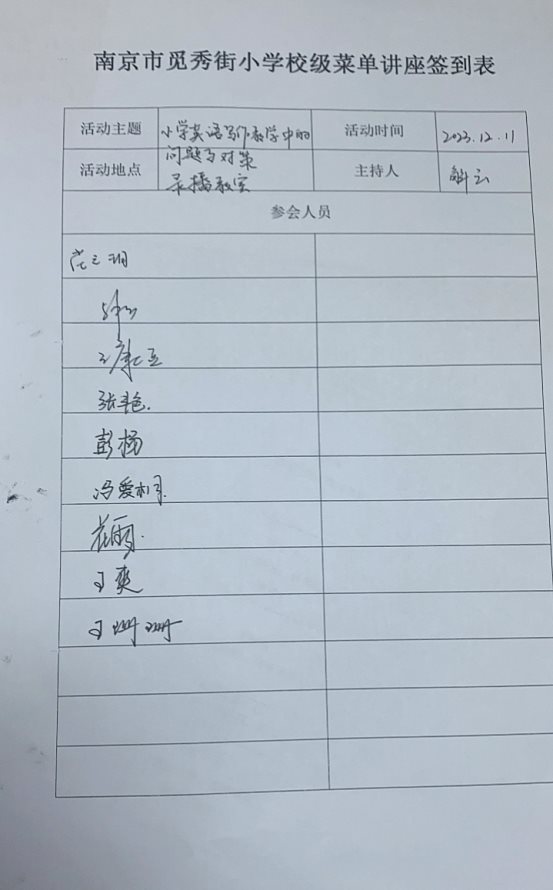 南京市觅秀街小学校级菜单讲座签到表
活动主题 小学英语写作教学中的问题与对策 活动时间 2023.12.11
活动地点 录播教室 主持人
参会人员
张艳
彭杨
冯爱相
王爽
王珊珊